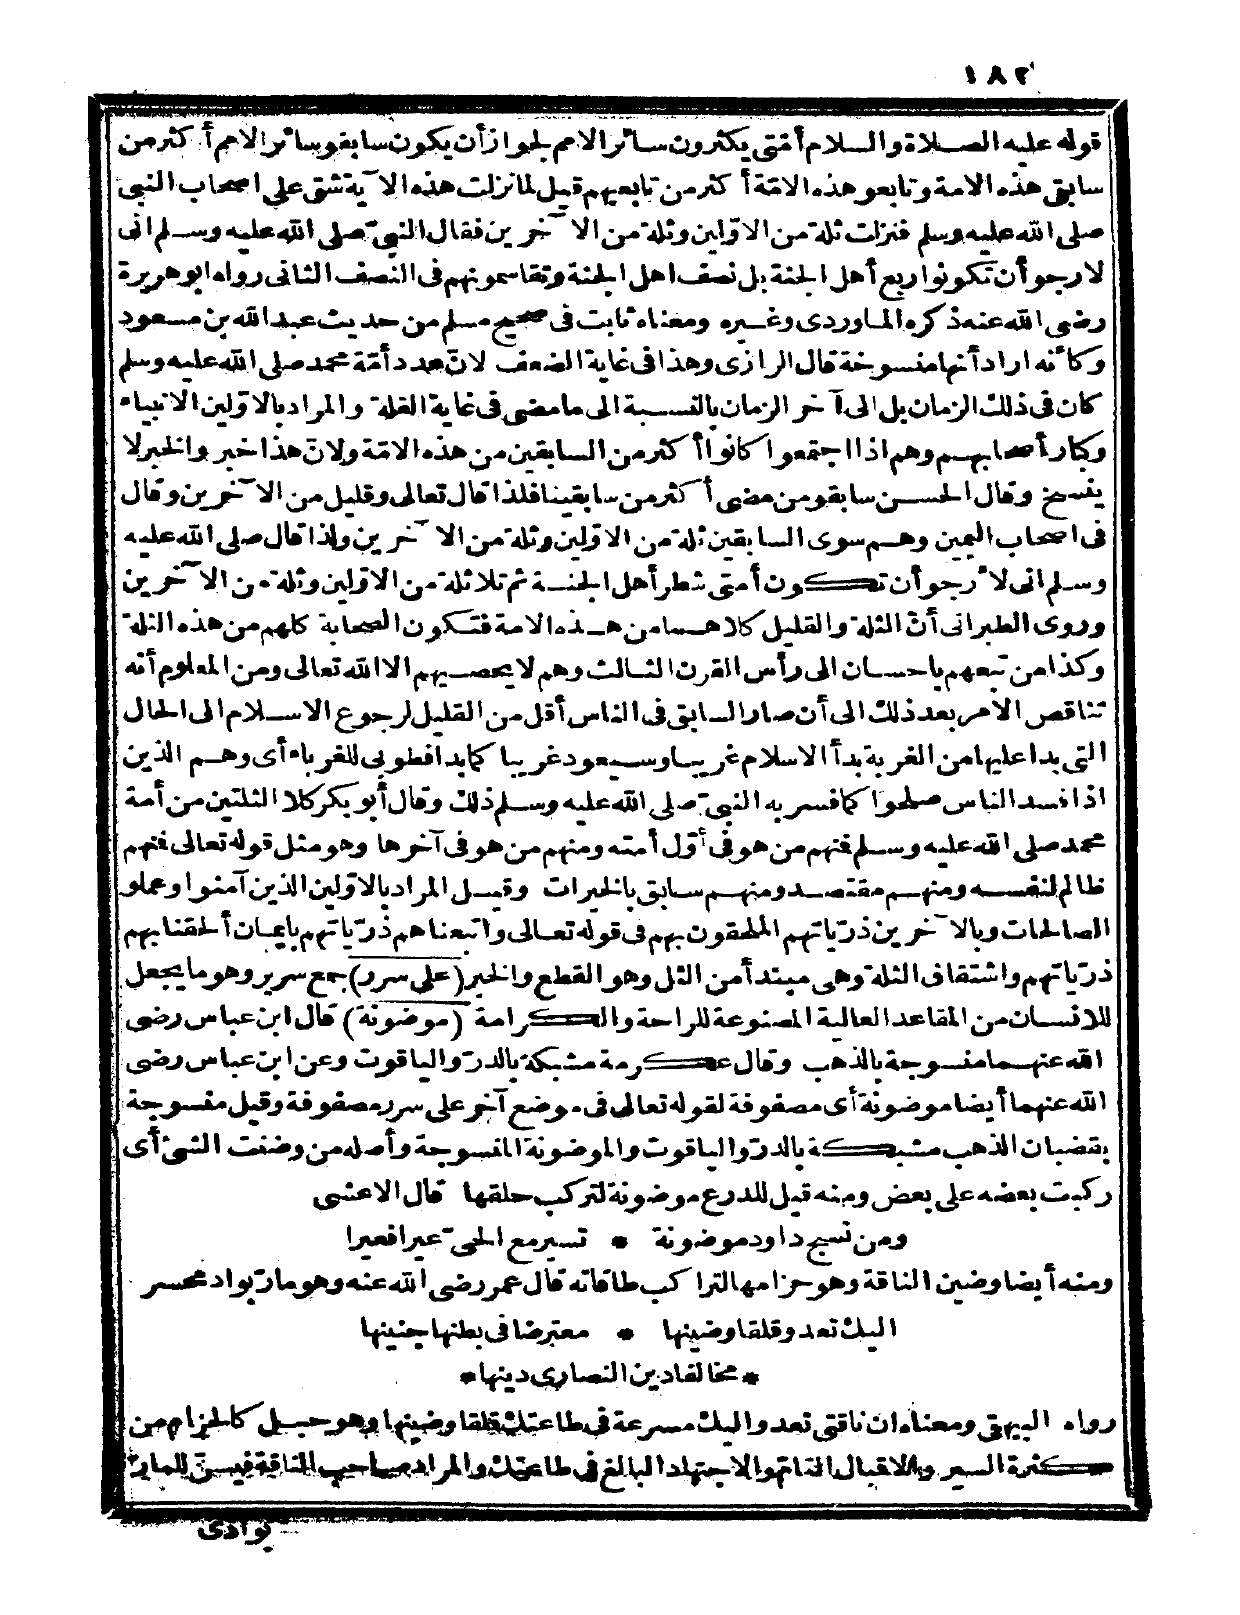 ١٨٢
قوله عليه الصلاة والسلام أمّتي يكثرون سائر الامم لجواز أن يكون سابقو سائر الامم أكثر من
سابقي هذه الامة وتابعو هذه الامّة أكثر من تابعيهم قيل لما نزلت هذه الآية شق على اصحاب النبي
صلى الله عليه وسلم فنزلت ثلة من الاوّلين وثلة من الآخرين فقال النبيّ صلى الله عليه وسلم انى
لارجو أن تكونوا ربع أهل الجنة بل نصف اهل الجنة وتقاسمونهم في النصف الثاني رواه ابو هريرة
رضى الله عنه ذكره الماوردى وغيره ومعناه ثابت في صحيح مسلم من حديث عبد الله بن مسعود
وكأنه اراد أنها منسوخة قال الرازى وهذا في غاية الضعف لانّ عدد أمّة محمد صلى الله عليه وسلم
كان في ذلك الزمان بل الى آخر الزمان بالنسبة الى ما مضى في غاية القلة والمراد بالاوّلين الانبياء
وكبار أصحابهم وهم اذا اجتمعوا كانوا أكثر من السابقين من هذه الامّة ولانّ هذا خبر والخبر لا
ينسخ وقال الحسن سابقو من مضى أكثر من سابقينا فلذا قال تعالى وقليل من الآخرين وقال
في اصحاب اليمين وهم سوى السابقين ثلة من الاوّلين وثلة من الآخرين ولذا قال صلى الله عليه
وسلم انى لأرجو أن تكون أمتى شطر أهل الجنة ثم تلا ثلة من الاوّلين وثلة من الآخرين
وروى الطبرانى أنّ الثلة والقليل كلاهما من هذه الامة فتكون الصحابة كلهم من هذه الثلة
وكذا من تبعهم باحسان الى رأس القرن الثالث وهم لا يحصيهم الا الله تعالى ومن المعلوم أنه
تناقص الامر بعد ذلك الى أن صار السابق في الناس أقل من القليل لرجوع الاسلام الى الحال
التى بدا عليها من الغربة بدأ الاسلام غريبا وسيعود غريبا كما بدا فطوبى للغرباء أى وهم الذين
اذا فسد الناس صلحوا كما فسر به النبيّ صلى الله عليه وسلم ذلك وقال أبو بكر كلا الثلتين من أمة
محمد صلى الله عليه وسلم فمنهم من هو في أوّل أمته ومنهم من هو في آخرها وهو مثل قوله تعالى فمنهم
ظالم لنفسه ومنهم مقتصد ومنهم سابق بالخيرات وقيل المراد بالاوّلين الذين آمنوا وعملو
الصالحات وبالآخرين ذرّياتهم الملحقون بهم في قوله تعالى واتبعناهم ذرّياتهم بايمان ألحقنا بهم
ذرّياتهم واشتقاق الثلة وهى مبتدأ من الثل وهو القطع والخبر (على سرر) جمع سرير وهو ما يجعل
للانسان من المقاعد العالية المصنوعة للراحة والكرامة (موضونة) قال ابن عباس رضى
الله عنهما منسوجة بالذهب وقال عكرمة مشبكة بالدرّ والياقوت وعن ابن عباس رضى
الله عنهما أيضا موضونة أى مصفوفة لقوله تعالى في موضع آخر على سرر مصفوفة وقيل منسوجة
بقضبان الذهب مشبكة بالدرّ والياقوت والموضونة المنسوجة وأصله من وضنت الشئ أى
ركبت بعضه على بعض ومنه قيل للدرع موضونة لتركب حلقها قال الاعشى
ومن نسج داود موضونة * تسير مع الحىّ عيرا فعيرا
ومنه أيضا وضين الناقة وهو حزامها لتراكب طاقاته قال عمر رضى الله عنه وهو مارّ بواد محسر
اليك تعدو قلقا وضينها * معترضا في بطنها جنينها
* مخالفا دين النصارى دينها *
رواه البيهقى ومعناه ان ناقتى تعدو اليك مسرعة في طاعتك قلقا وضينها وهو حبل كالحزام من
كثرة السير والاقبال التامّ والاجتهاد البالغ في طاعتك والمراد صاحب الناقة فيسنّ للمارّ
بوادى